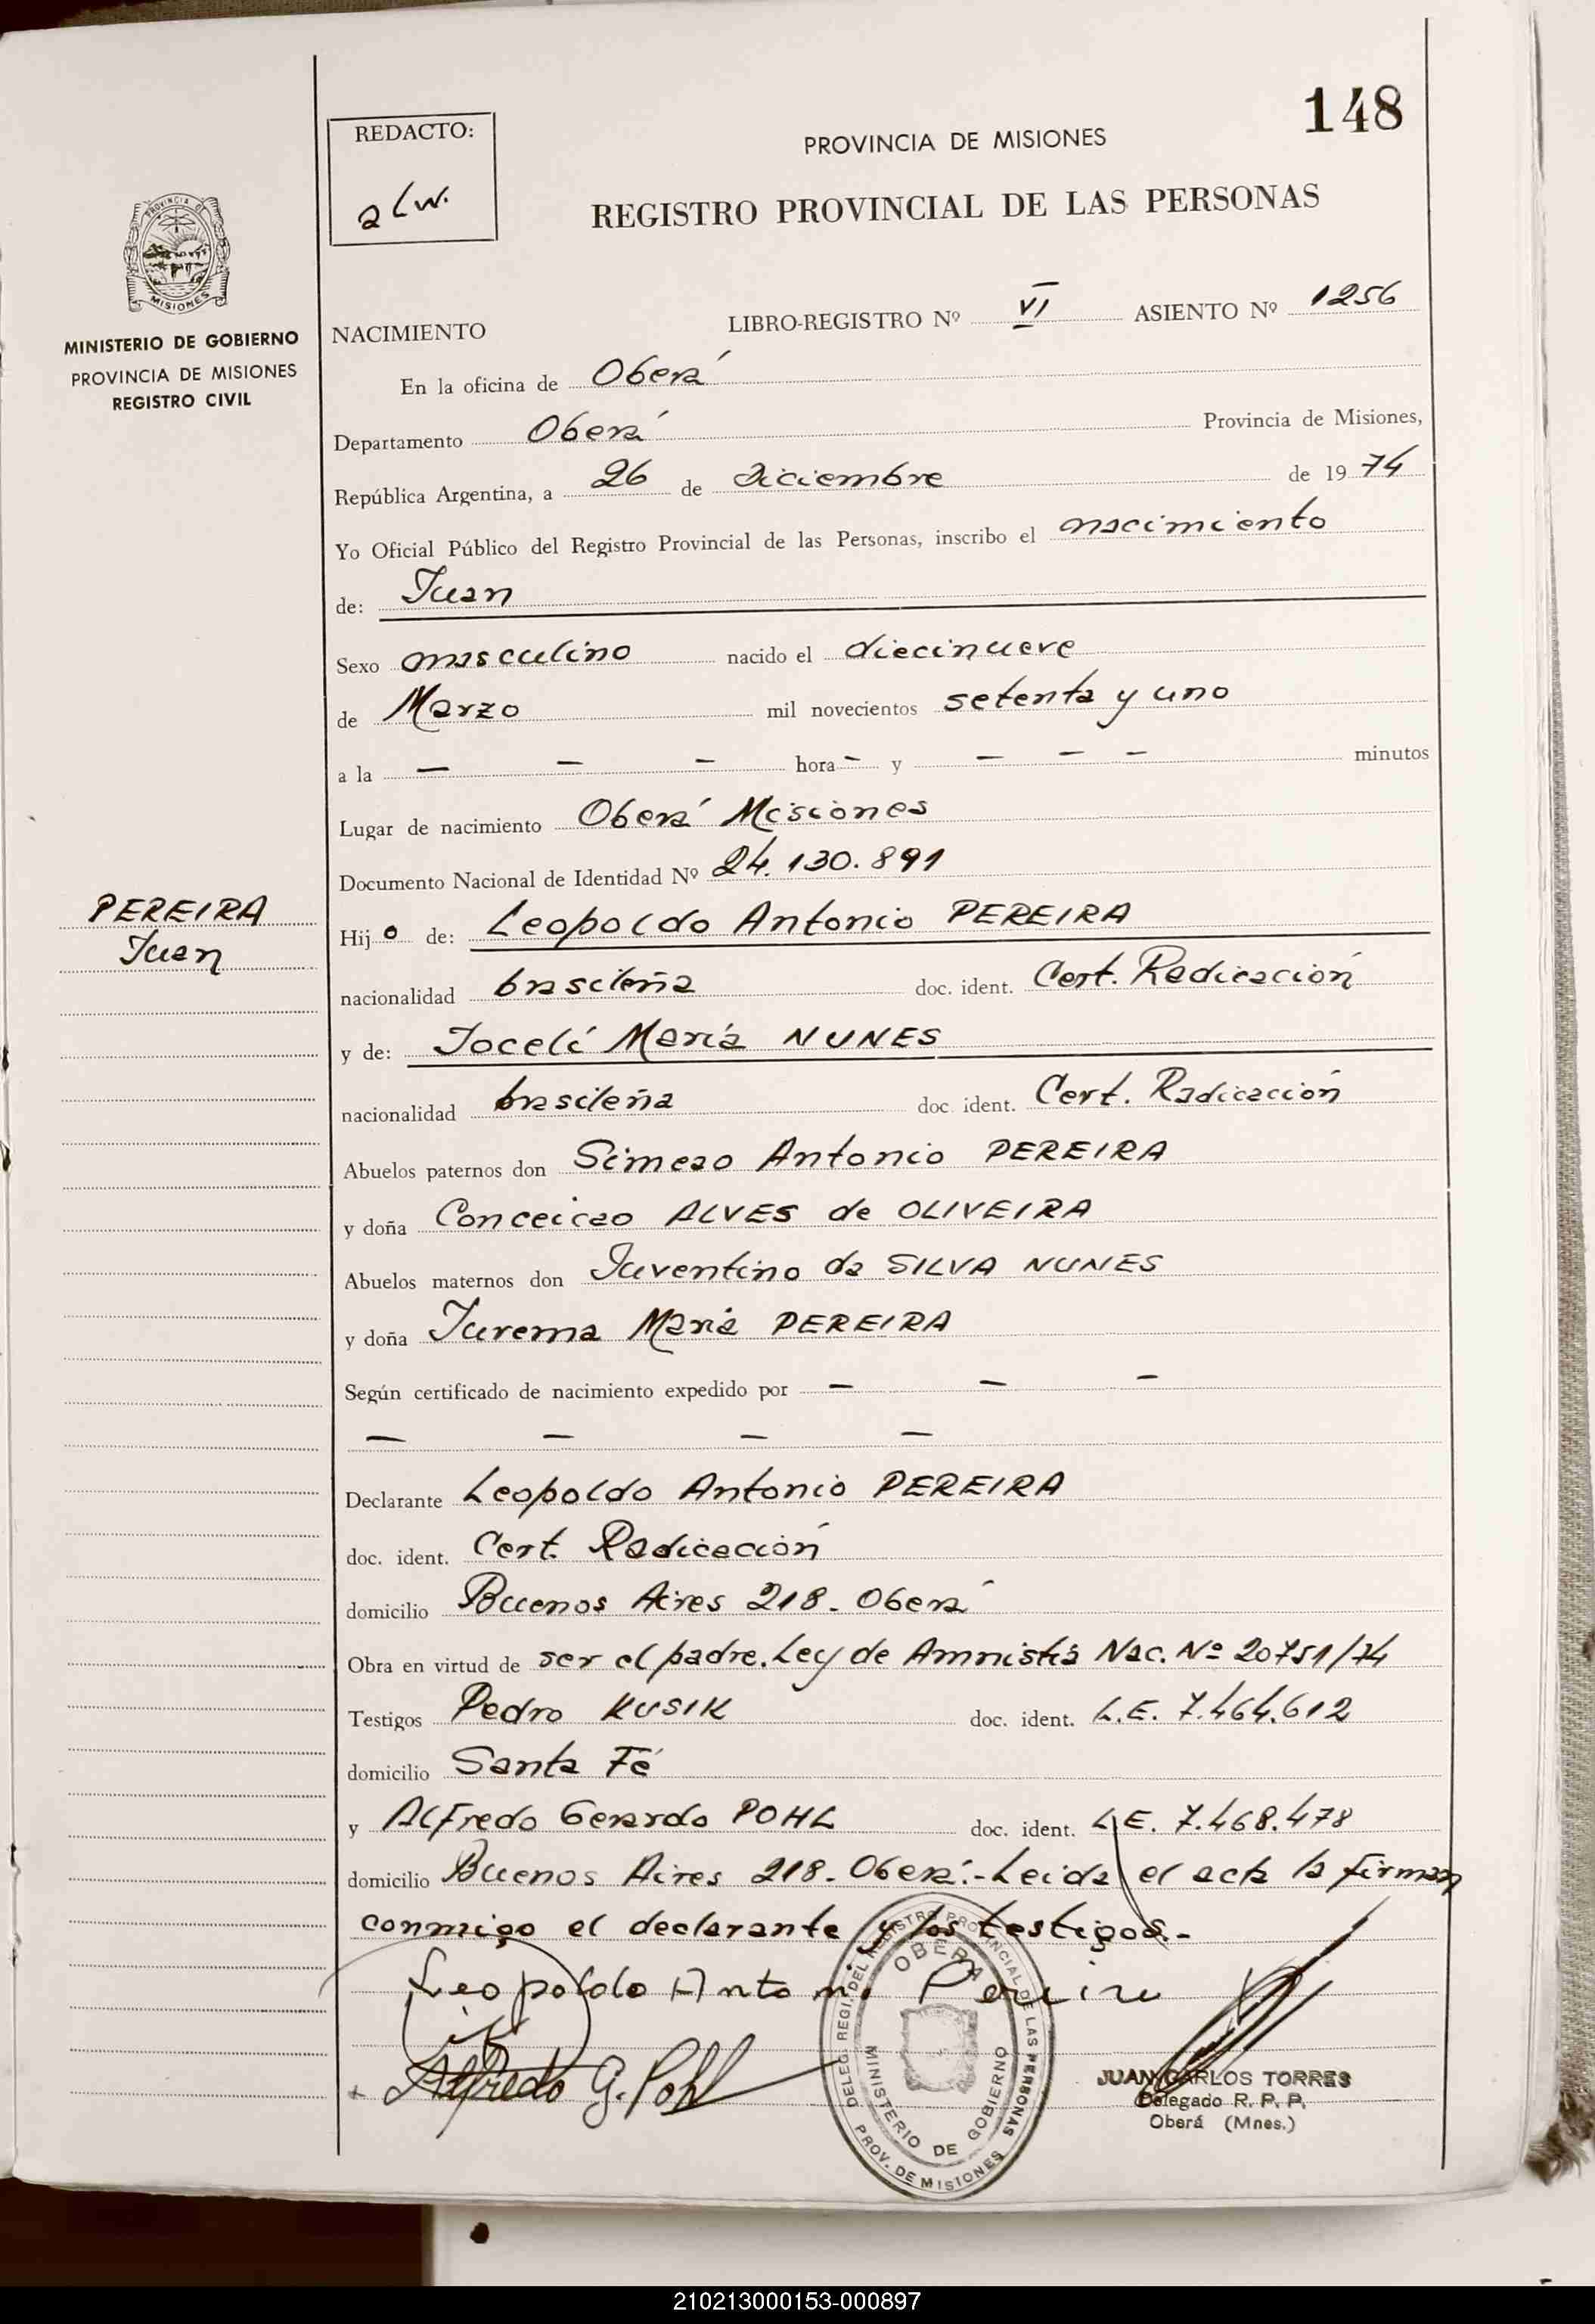 148
REDACTO:
PROVINCIA DE MISIONES
REGISTRO PROVINCIAL DE LAS PERSONAS
PROVINCIA DE
MISIONES
MINISTERIO DE GOBIERNO
PROVINCIA DE MISIONES
REGISTRO CIVIL
NACIMIENTO LIBRO-REGISTRO Nº VI ASIENTO Nº 1256
En la oficina de Oberá
Departamento Oberá Provincia de Misiones,
República Argentina, a 26 de Diciembre de 1974
Yo Oficial Público del Registro Provincial de las Personas, inscribo el nacimiento
de: Juan
Sexo masculino nacido el diecinueve
de Marzo mil novecientos setenta y uno
a la — — — hora — y — — — minutos
Lugar de nacimiento Oberá Misiones
Documento Nacional de Identidad Nº 24.130.891
PEREIRA
Juan
Hijo de: Leopoldo Antonio PEREIRA
nacionalidad brasileña doc. ident. Cert. Radicación
y de: Jocelí María NUNES
nacionalidad brasileña doc ident. Cert. Radicación
Abuelos paternos don Simeao Antonio PEREIRA
y doña Conceicao ALVES de OLIVEIRA
Abuelos maternos don Juventino da SILVA NUNES
y doña Jurema María PEREIRA
Según certificado de nacimiento expedido por — — —
— — — —
Declarante Leopoldo Antonio PEREIRA
doc. ident. Cert. Radicación
domicilio Buenos Aires 218- Oberá
Obra en virtud de ser el padre. Ley de Amnistía Nac. Nº 20751/74
Testigos Pedro KUSIK doc. ident. L.E. 7.464.612
domicilio Santa Fé
y Alfredo Gerardo POHL doc. ident. L.E. 7.468.478
domicilio Buenos Aires 218- Oberá.- Leída el acta la firman
conmigo el declarante y los testigos.-
Leopoldo Antoni Pereira
Alfredo G. Pohl
DELEG. REGI. DEL REGISTRO PROVINCIAL DE LAS PERSONAS
OBERA
MINISTERIO DE GOBIERNO
PROV. DE MISIONES
JUAN CARLOS TORRES
Delegado R. P. P.
Oberá (Mnes.)
210213000153-000897